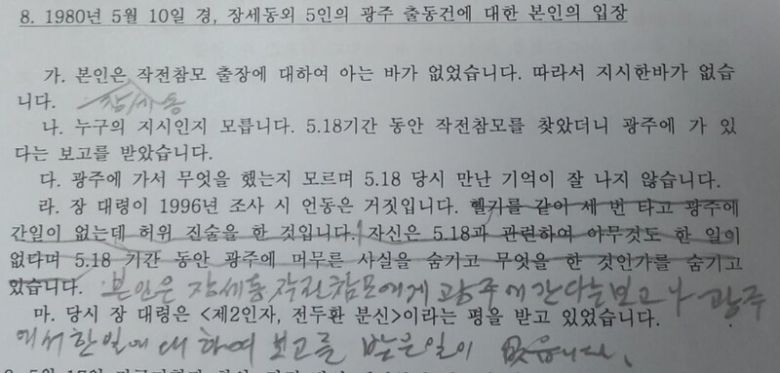 8. 1980년 5월 10일 경, 장세동외 5인의 광주 출동건에 대한 본인의 입장
가. 본인은 작전참모 출장에 대하여 아는 바가 없었습니다. 따라서 지시한바가 없습
니다. 장세동
나. 누구의 지시인지 모릅니다. 5.18기간 동안 작전참모를 찾았더니 광주에 가 있
다는 보고를 받았습니다.
다. 광주에 가서 무엇을 했는지 모르며 5.18 당시 만난 기억이 잘 나지 않습니다.
라. 장 대령이 1996년 조사 시 언동은 거짓입니다. 헬기를 같이 세 번 타고 광주에
간일이 없는데 허위 진술을 한 것입니다. 자신은 5.18과 관련하여 아무것도 한 일이
없다며 5.18 기간 동안 광주에 머무른 사실을 숨기고 무엇을 한 것인가를 숨기고
있습니다. 본인은 장세동 작전참모에게 광주에 간다는 보고나 광주
마. 당시 장 대령은 <제2인자, 전두환 분신>이라는 평을 받고 있었습니다.
에서 한 일에 대하여 보고를 받은일이 없읍니다.